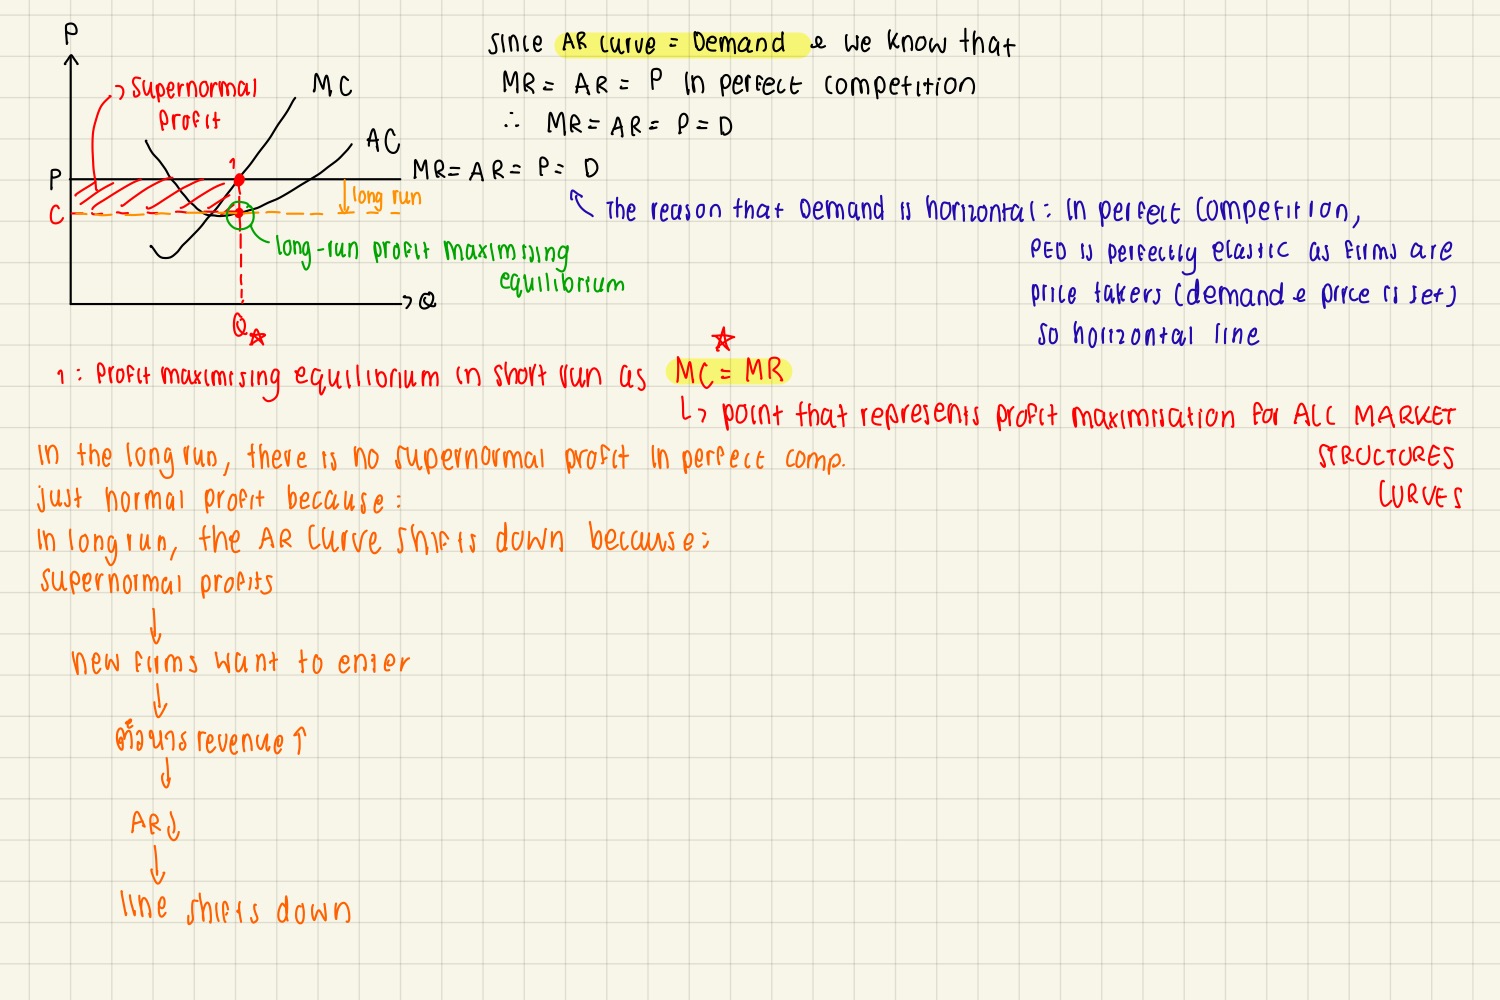 P
Since AR curve = Demand & we know that
MR = AR = P in perfect competition
∴ MR = AR = P = D
Supernormal
profit
MC
AC
P
MR = AR = P = D
C
long run
The reason that Demand is horizontal: In perfect competition,
PED is perfectly elastic as firms are
price takers (demand & price is set)
so horizontal line
long-run profit maximising
equilibrium
Q
Q
1
1: Profit maximising equilibrium in short run as MC = MR
↳ point that represents profit maximisation for ALL MARKET
STRUCTURES
CURVES
In the long run, there is no supernormal profit in perfect comp.
just normal profit because:
In long run, the AR curve shifts down because:
supernormal profits
↓
new firms want to enter
↓
ตัวหาร revenue ↑
↓
AR ↓
↓
line shifts down